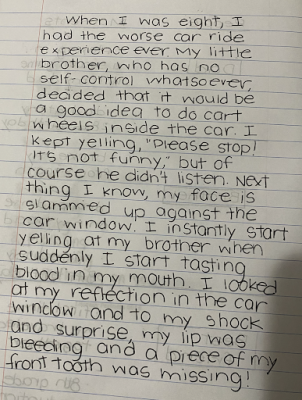 When I was eight, I
had the worse car ride
experience ever. My little
brother, who has no
self-control whatsoever,
decided that it would be
a good idea to do cart
wheels inside the car. I
kept yelling, "Please stop!
It's not funny," but of
course he didn't listen. Next
thing I know, my face is
slammed up against the
car window. I instantly start
yelling at my brother when
suddenly I start tasting
blood in my mouth. I looked
at my reflection in the car
window and to my shock
and surprise, my lip was
bleeding and a piece of my
front tooth was missing!